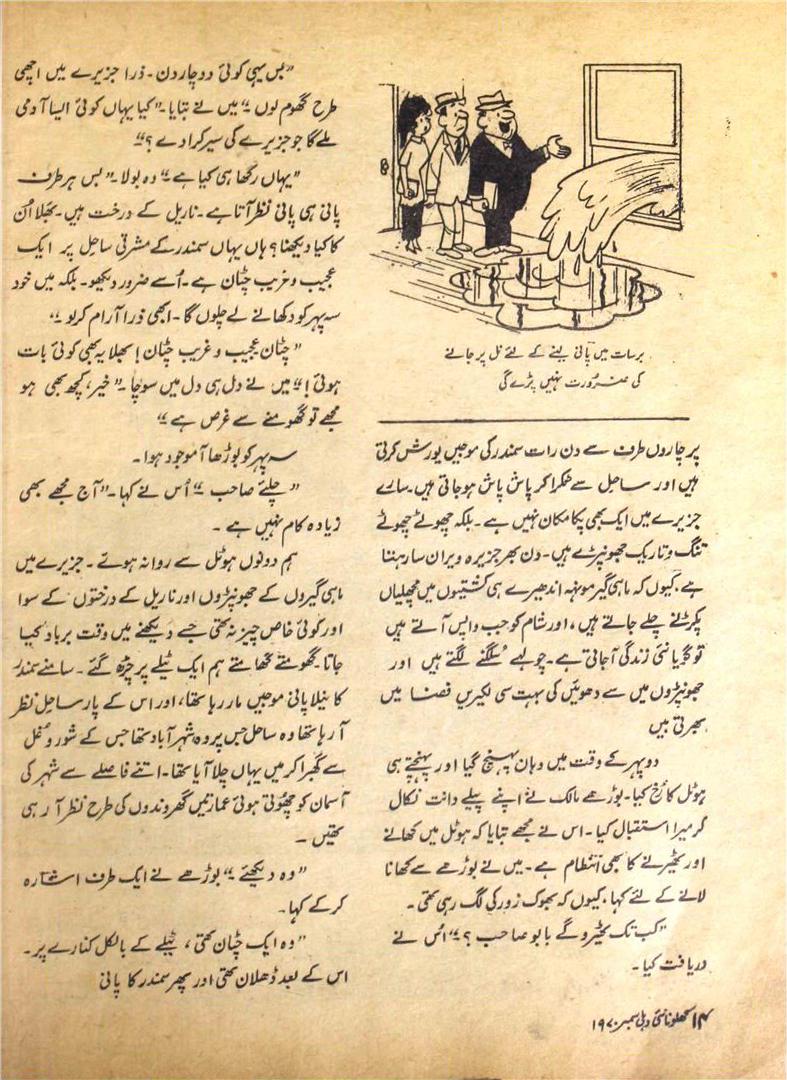 برسات میں پانی پینے کے لئے نل پر جانے
کی ضرورت نہیں پڑے گی
پر چاروں طرف سے دن رات سمندر کی موجیں یورش کرتی
ہیں اور ساحل سے ٹکرا کر پاش پاش ہو جاتی ہیں۔ سارے
جزیرے میں ایک بھی پکا مکان نہیں ہے۔ بلکہ چھوٹے چھوٹے
تنگ و تاریک جھونپڑے ہیں۔ دن بھر جزیرہ ویران سا رہتا
ہے۔ کیوں کہ ماہی گیر مونہہ اندھیرے ہی کشتیوں میں مچھلیاں
پکڑنے چلے جاتے ہیں، اور شام کو جب واپس آتے ہیں
تو گویا نئی زندگی آ جاتی ہے۔ چولہے سُلگنے لگتے ہیں اور
جھونپڑوں میں سے دھوئیں کی بہت سی لکیریں فضا میں
بھرتی ہیں
دوپہر کے وقت میں وہاں پہنچ گیا اور پہنچتے ہی
ہوٹل کا رُخ کیا۔ بوڑھے مالک نے اپنے پیلے دانت نکال
کر میرا استقبال کیا۔ اس نے مجھے بتایا کہ ہوٹل میں کھانے
اور ٹھیرنے کا بھی انتظام ہے۔ میں نے بوڑھے سے کھانا
لانے کے لئے کہا، کیوں کہ بھوک زور کی لگ رہی تھی۔
”کب تک ٹھیرو گے بابو صاحب؟“ اُس نے
دریافت کیا۔
”بس یہی کوئی دو چار دن۔ ذرا جزیرے میں اچھی
طرح گھوم لوں“ میں نے بتایا۔ ”کیا یہاں کوئی ایسا آدمی
ملے گا جو جزیرے کی سیر کرا دے؟“
”یہاں رکھا ہی کیا ہے“ وہ بولا۔ ”بس ہر طرف
پانی ہی پانی نظر آتا ہے۔ ناریل کے درخت ہیں۔ بھلا اُن
کا کیا دیکھنا؟ ہاں یہاں سمندر کے مشرقی ساحل پر ایک
عجیب و غریب چٹان ہے۔ اُسے ضرور دیکھو۔ بلکہ میں خود
سہ پہر کو دکھانے لے چلوں گا۔ ابھی ذرا آرام کر لو“
”چٹان عجیب و غریب چٹان! بھلا یہ بھی کوئی بات
ہوئی!“ میں نے دل ہی دل میں سوچا۔ ”خیر، کچھ بھی ہو
مجھے تو گھومنے سے غرض ہے“
سہ پہر کو بوڑھا آ موجود ہوا۔
”چلئے صاحب“ اُس نے کہا۔ ”آج مجھے بھی
زیادہ کام نہیں ہے۔
ہم دونوں ہوٹل سے روانہ ہوئے۔ جزیرے میں
ماہی گیروں کے جھونپڑوں اور ناریل کے درختوں کے سوا
اور کوئی خاص چیز نہ تھی جسے دیکھنے میں وقت برباد کیا
جاتا۔ گھومتے گھامتے ہم ایک ٹیلے پر چڑھ گئے۔ سامنے سمندر
کا نیلا پانی موجیں مار رہا تھا، اور اس کے پار ساحل نظر
آ رہا تھا وہ ساحل جس پر وہ شہر آباد تھا جس کے شور و غل
سے گھبرا کر میں یہاں چلا آیا تھا۔ اتنے فاصلے سے شہر کی
آسمان کو چھوتی ہوئی عمارتیں گھروندوں کی طرح نظر آ رہی
تھیں۔
”وہ دیکھئے“ بوڑھے نے ایک طرف اشارہ
کر کے کہا۔
”وہ ایک چٹان تھی، ٹیلے کے بالکل کنارے پر۔
اس کے بعد ڈھلان تھی اور پھر سمندر کا پانی
۱۴ کھلونا نئی دہلی ستمبر ۱۹۷۰